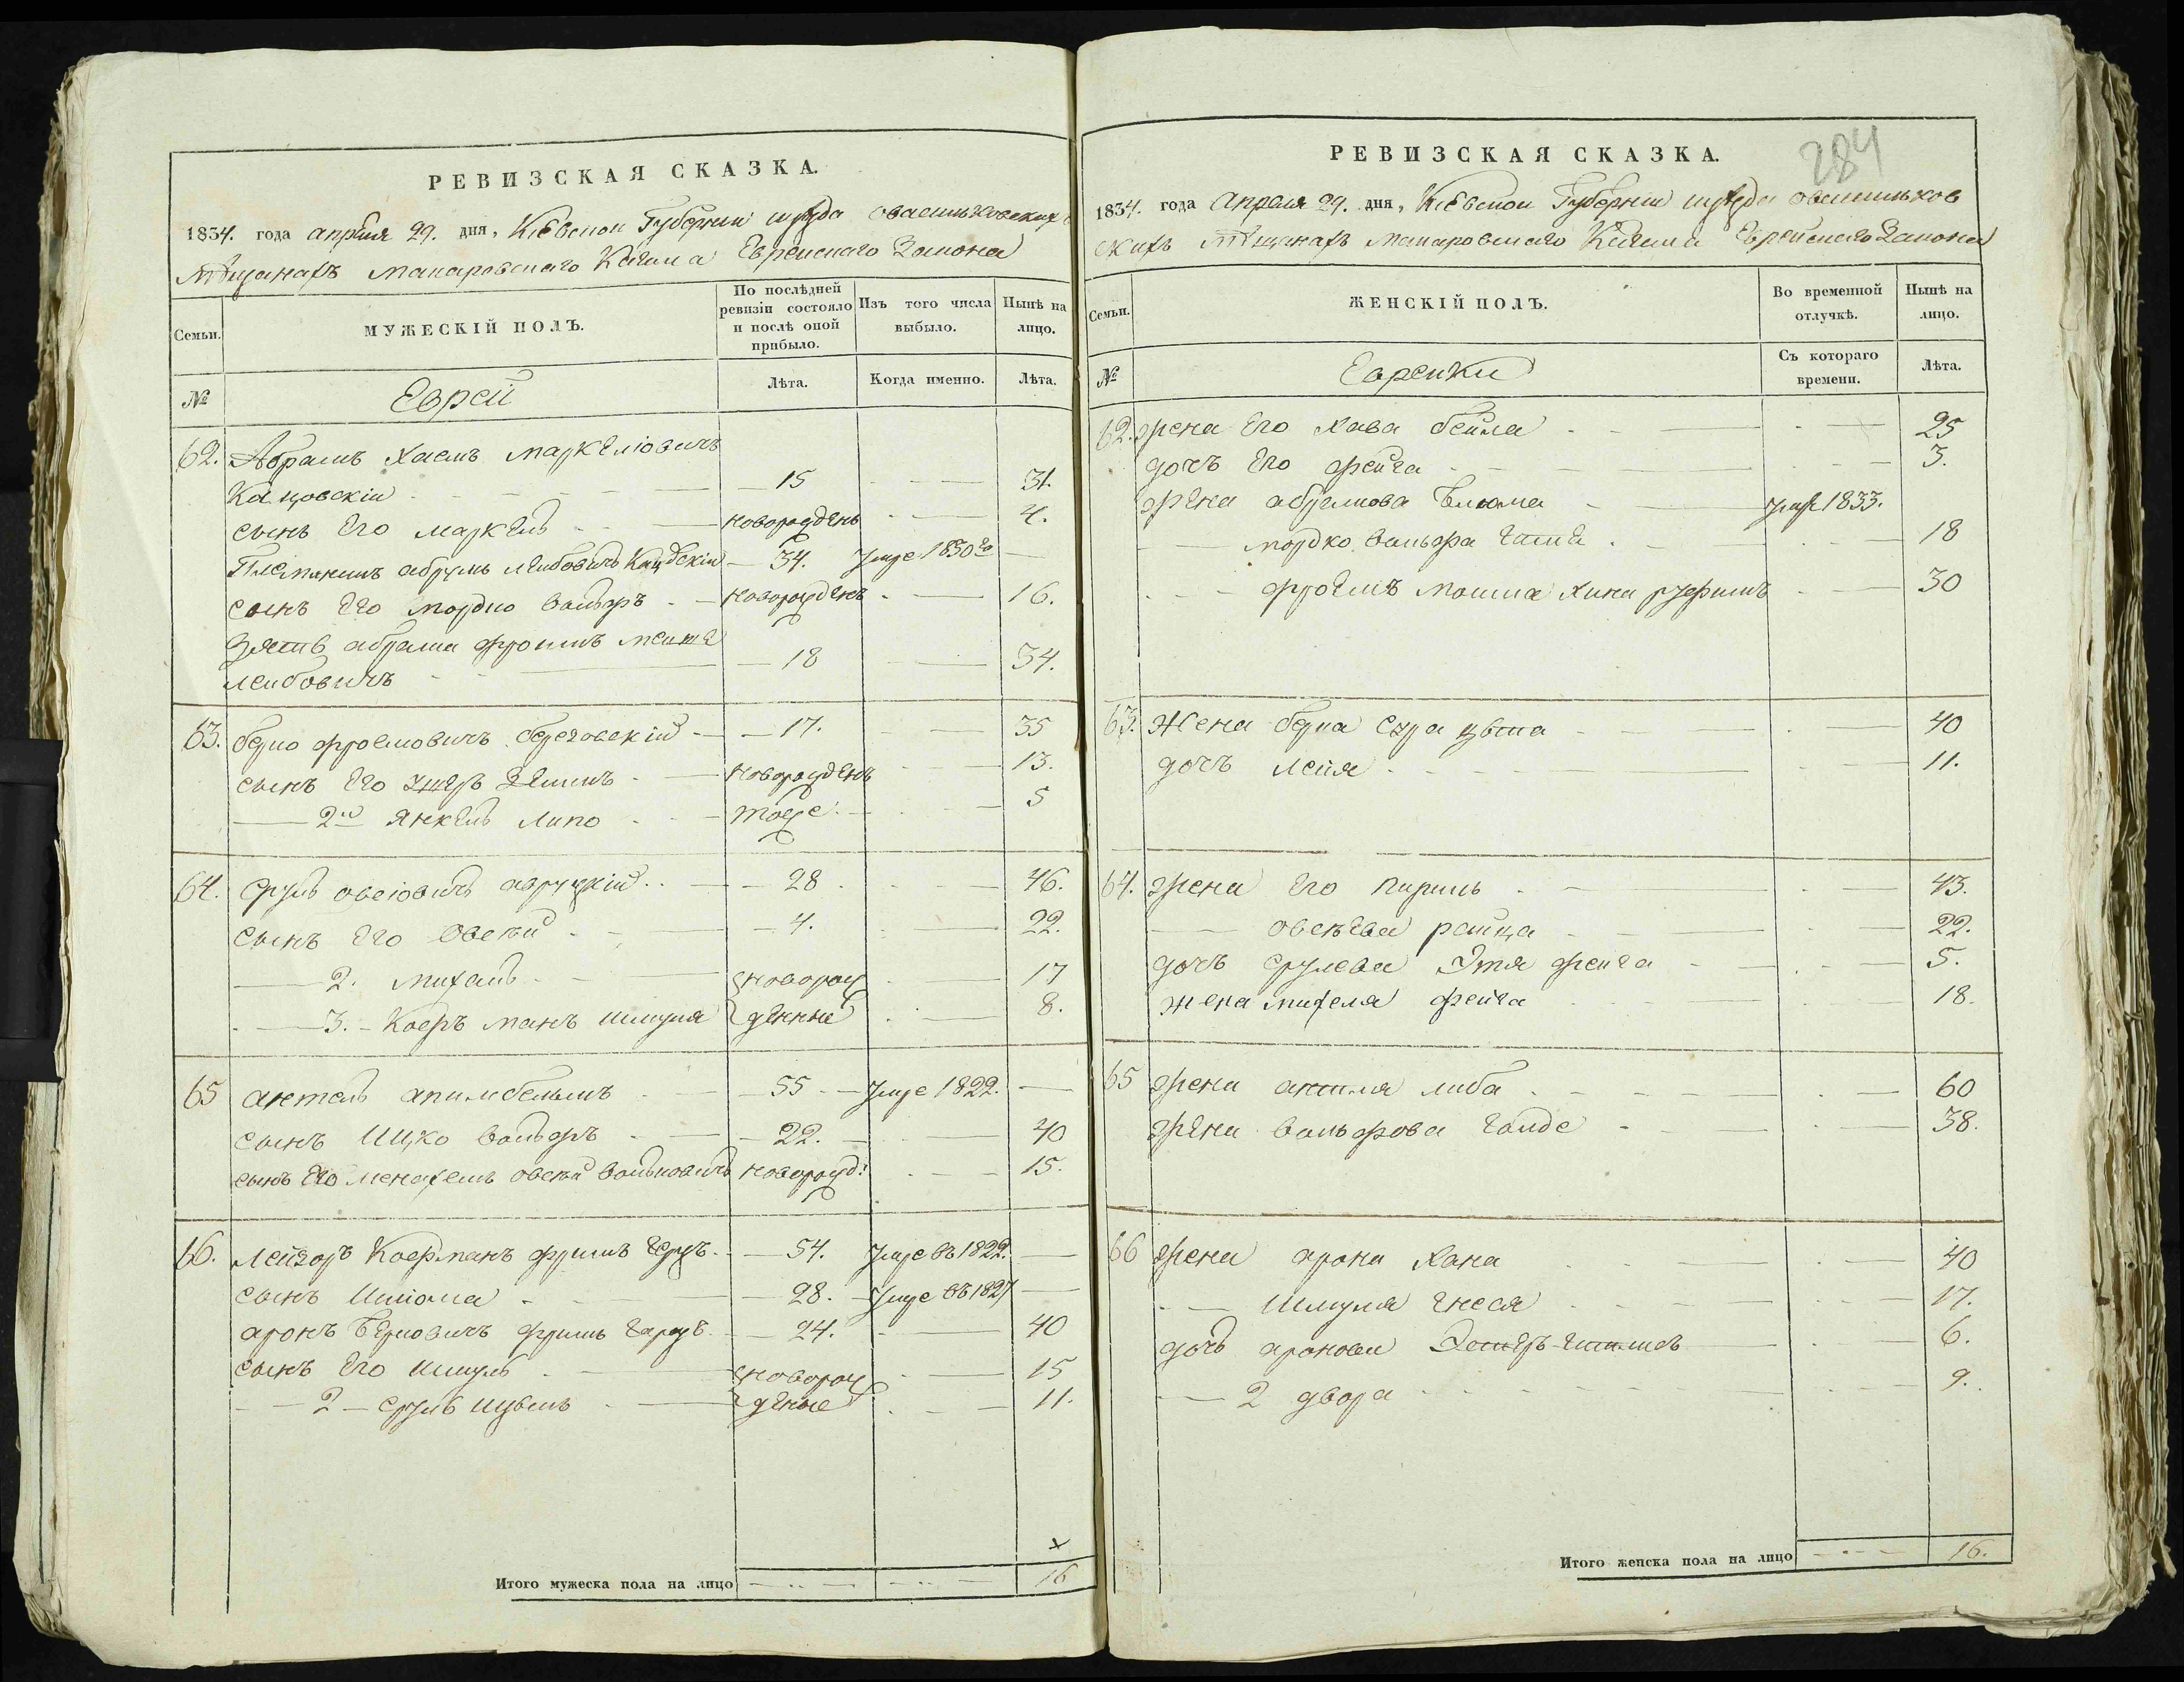 РЕВИЗСКАЯ СКАЗКА.
1834. года апреля 29. дня, Кіевской Губерніи
мѣщанахъ Макаровскаго Кагала Еврейскаго Закона
Семьи.
МУЖЕСКІЙ ПОЛЪ.
По послѣдней ревизіи состояло и послѣ оной прибыло.
Изъ того числа выбыло.
Нынѣ на лицо.
№
Еврей
Лѣта.
Когда именно.
Лѣта.
62. Абрамъ Хаемъ Маркеліовичъ
Кацовскій 15 31.
сынъ Его Маркель новорожденъ 4.
Племянникъ абрумъ Лейбовичъ 34. умре 1830го
сынъ Его Мордко Вольфъ новорожденъ 16.
зять абрама фроимъ
Лейбовичъ 18 34.
63. берко фроемовичъ береговскій 17. 35
сынъ Его новорожденъ 13.
2й Янкель Липо тоже 5
64. Сруль овсіовичъ авруцкій 28 46.
Сынъ Его Овсей 4. 22.
2. Михель новорож 17
3. Коефъ манъ шмуля денные 8.
65 антель 55 умре 1822.
сынъ Ицко Вольфъ 22. 40
сынъ Его Менахемъ овсей Вольковичъ новорожд: 15.
66. Лейзоръ Коефманъ 54. умре въ 1822.
сынъ Шліома 28. умре въ 1827
аронъ Берковичъ 24. 40
сынъ Его шмуль новорож 15
2 Сруль деные 11.
Итого мужеска пола на лицо 16
284
РЕВИЗСКАЯ СКАЗКА.
1834. года Апреля 29. дня, Кіевской Губерніи
скихъ мѣщанахъ Макаровскаго Кагала Еврейскаго Закона
Семьи.
ЖЕНСКІЙ ПОЛЪ.
Во временной отлучкѣ.
Нынѣ на лицо.
№
Еврейки
Съ котораго времени.
Лѣта.
62. жена Его Хава бейла 25
дочъ Его фейга 3.
жена абрамова Блюма 1833.
Мордко Вольфа 18
30
63. Жена берка Сура 40
дочъ Лейя 11.
64. жена Его 43.
овсѣева 22.
дочъ срулева Этя фейга 5.
жена михеля фейга 18.
65 жена либа 60
жена Вольфова Голде 38.
66 жена арона Хана 40
Шмуля Гнеся 17.
дочъ аронова 6.
2 двора 9.
Итого женска пола на лицо 16.